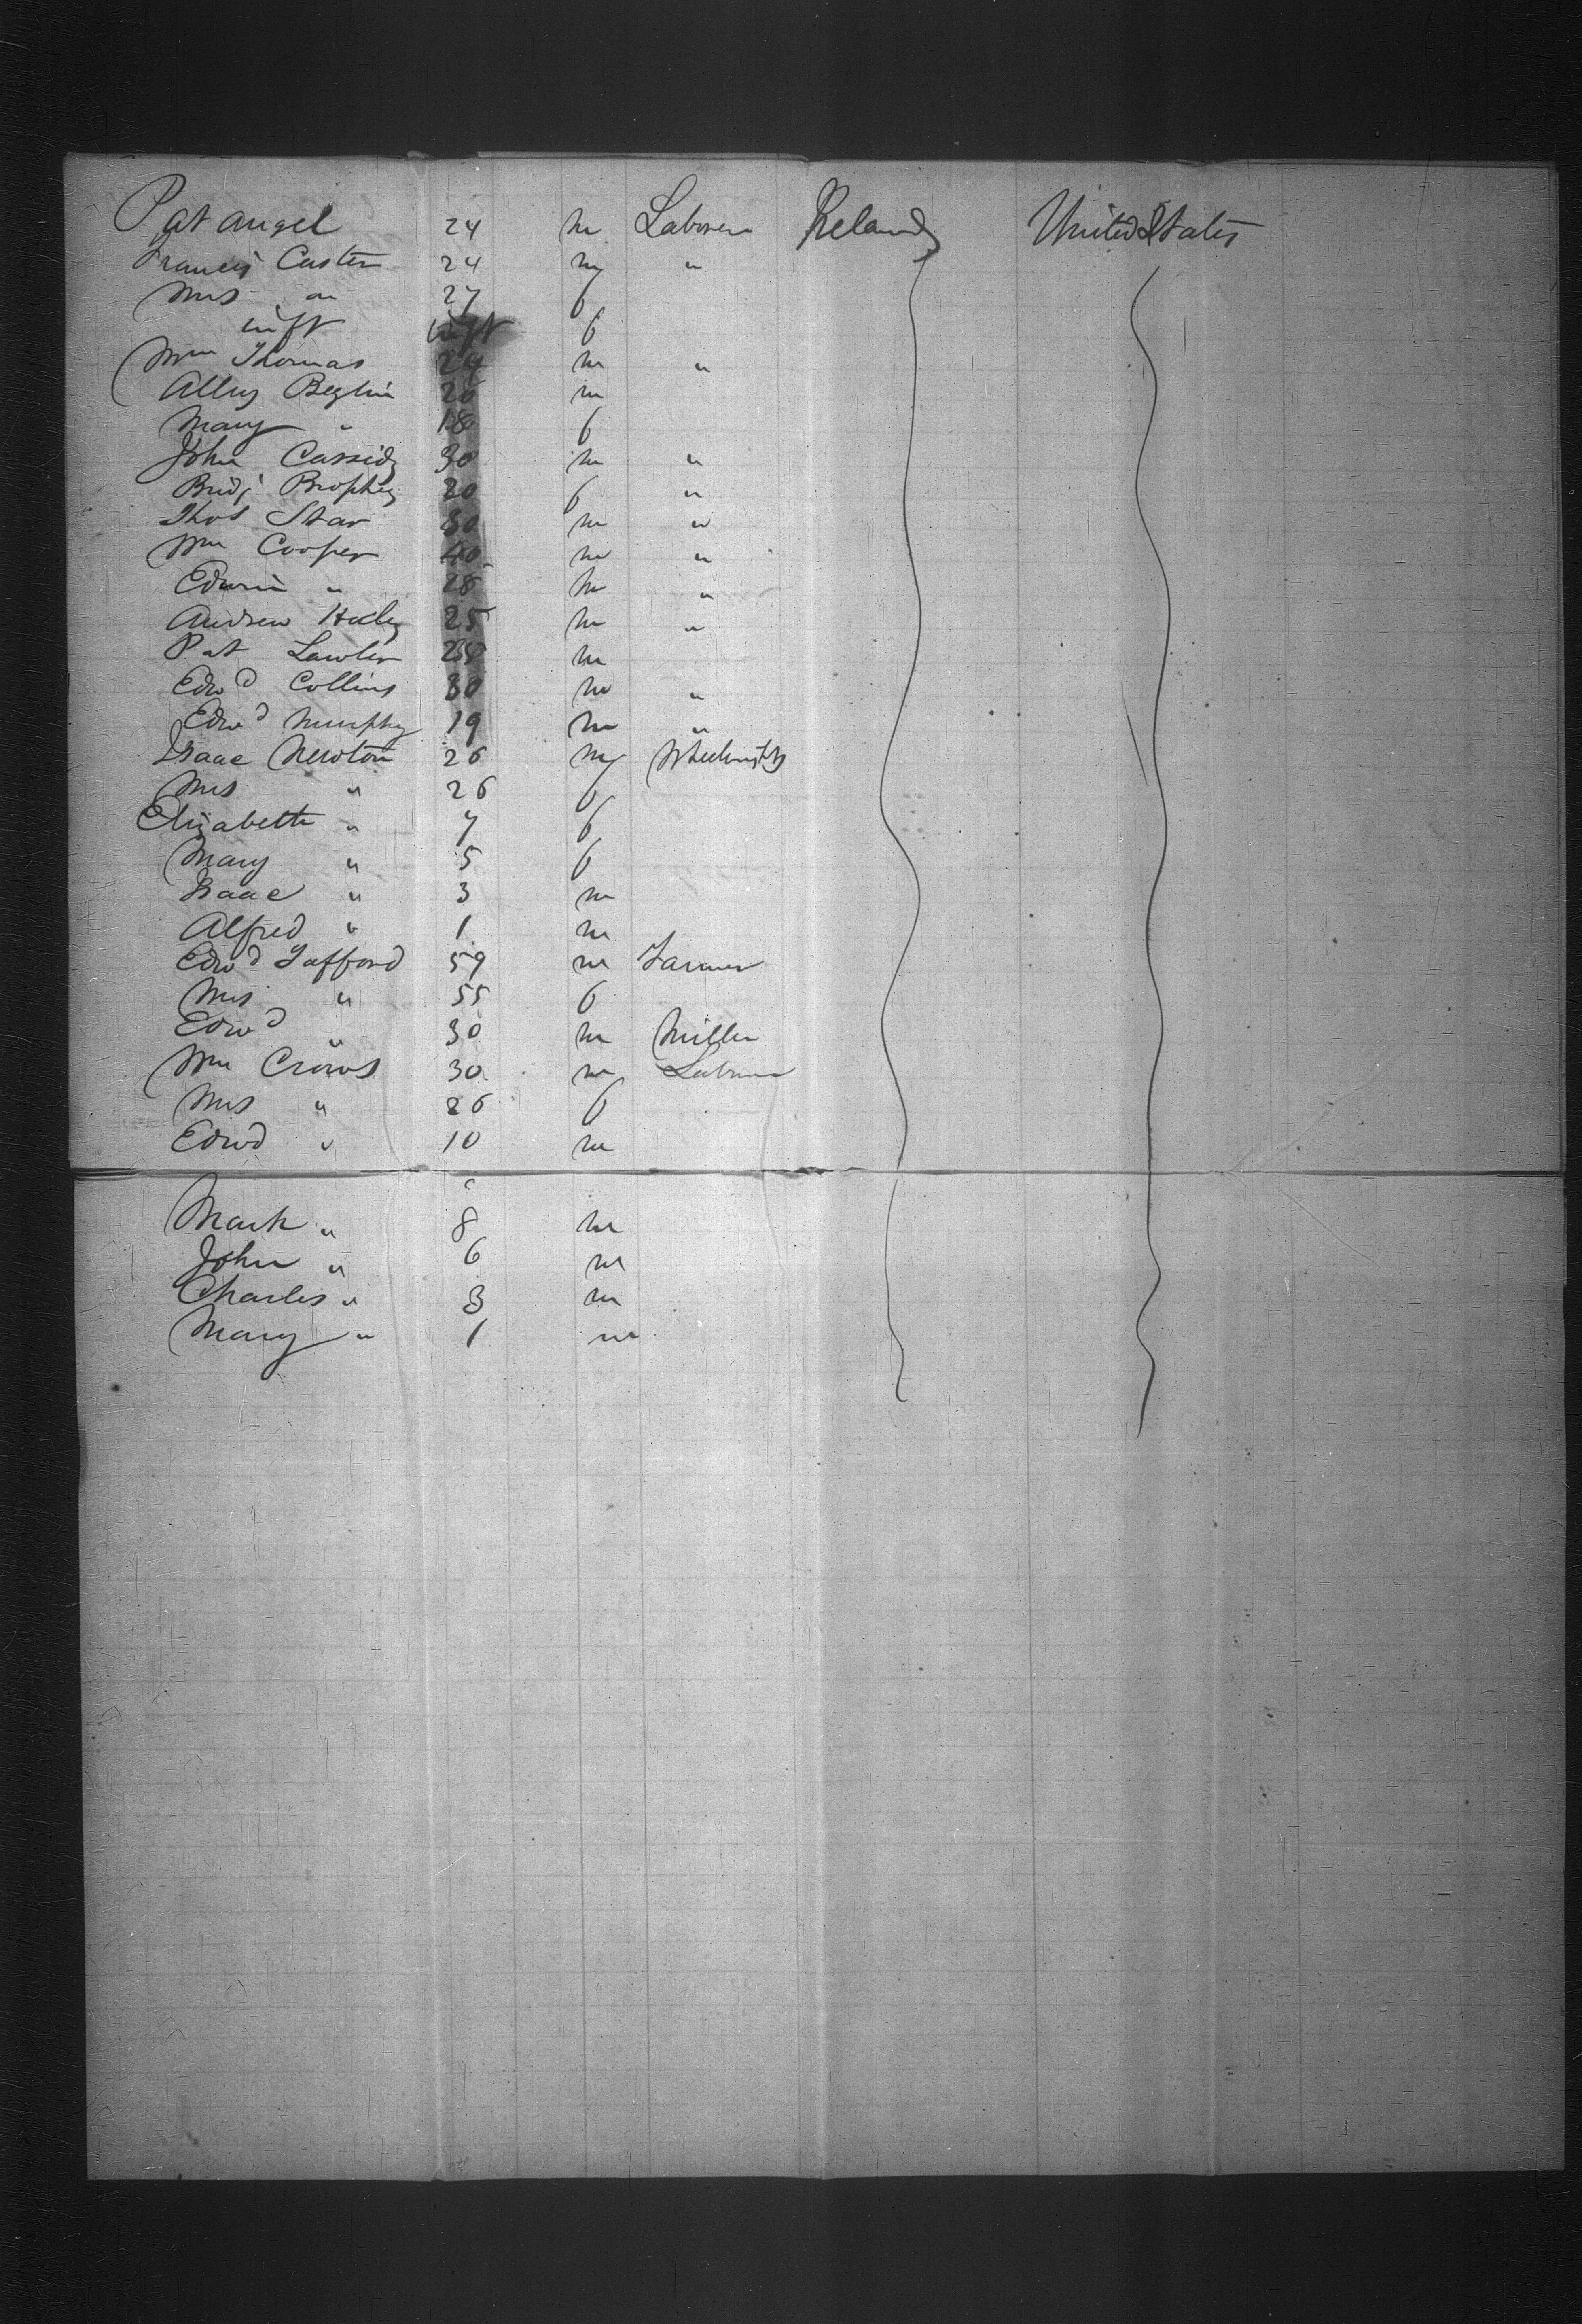 Pat Angel 24 m Laborer Ireland United States
Francis Caster 24 m "
Mrs " 27 f
inft inft f
Wm Thomas 24 m "
Alley Beglin 26 m
Mary " 18 f
John Cassidy 30 m "
Bridj Brophey 20 f "
Thos Star 30 m "
Wm Cooper 40 m "
Edwin " 28 m "
Andrew Healy 25 m "
Pat Lawler 25 m
Edwd Collins 30 m "
Edwd Murphy 19 m "
Isaac Newton 26 m Wheelwright
Mrs " 26 f
Elizabeth " 7 f
Mary " 5 f
Isaac " 3 m
Alfred " 1 m
Edwd Tafford 59 m Farmer
Mrs " 55 f
Edwd " 30 m Miller
Wm Crows 30 m Laborer
Mrs " 26 f
Edwd " 10 m
Mark " 8 m
John " 6 m
Charles " 3 m
Mary " 1 m